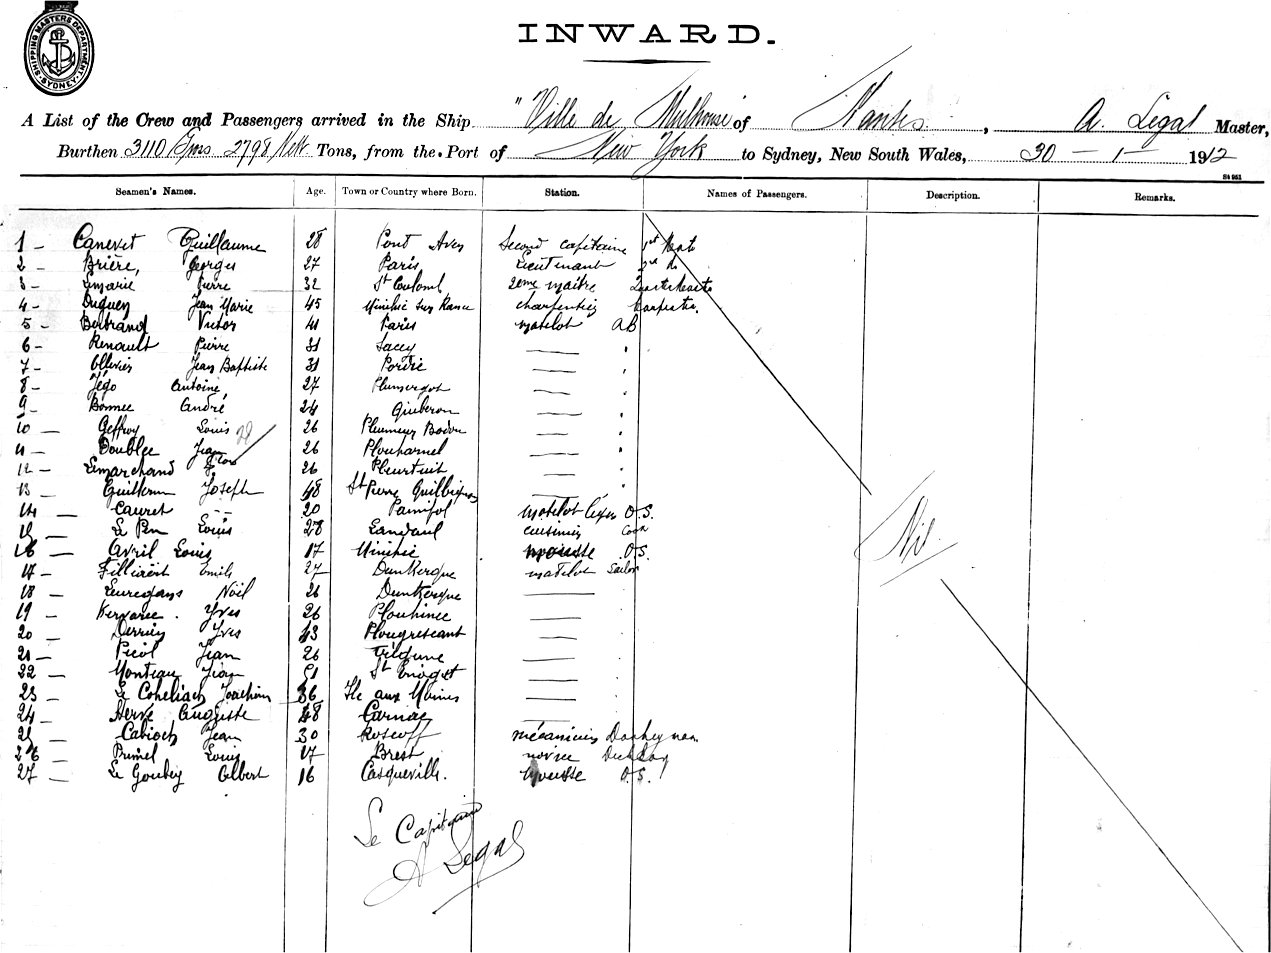 SHIPPING MASTERS DEPARTMENT SYDNEY
INWARD.
A List of the Crew and Passengers arrived in the Ship "Ville de Mulhouse of Nantes, A. Legal Master,
Burthen 3110 Gross 2798 Nett Tons, from the Port of New York to Sydney, New South Wales, 30 - 1 - 1912
St 951
Seamen's Names. Age. Town or Country where Born. Station. Names of Passengers. Description. Remarks.
1 - Canevet Guillaume 28 Pont Aven Second capitaine 1st Mate
2 - Brière, Georges 27 Paris Lieutenant 2nd do
3 - Lemarié Pierre 32 St Coulomb 2eme maître
4 - Duguen Jean Marie 45 Minihic sur Rance charpentier Carpenter.
5 - Bertrand Victor 41 Paris matelot AB
6 - Renault Pierre 31 Sacey — "
7 - Ollivier Jean Baptiste 31 Pordic — "
8 - Jégo Antoine 27 Plumergat — "
9 - Bonnec André 24 Quiberon — "
10 - Geffroy Louis 26 Plumeur Bodou — "
11 - Doublec Jean 26 Plouharnel — "
12 - Lemarchand 26 Pleurtuit — "
13 - Guillerm Joseph 48 St Pierre Quilbignon —
14 — Cauret -- 20 Paimpol matelot léger O.S.
15 — Le Pen Louis 28 cuisinier Cook
16 — Avril Louis 17 Minihic mousse O.S.
17 — Filliaert Emile 27 Dunkerque matelot Sailor
18 — Noël 26 Dunkerque —
19 — Kervarec. Yves 26 Plouhinec —
20 — Derrien Yves 43 Plougrescant —
21 — Picol Jean 26 —
22 — Monteau Jean —
23 — Le Coheliach Joachim 36 Ile aux Moines —
24 — Hervé Auguste 48 Carnac —
25 — Cabioch Jean 30 Roscoff mécanicien Donkeyman
26 — Primel Louis 17 Brest novice Deckboy
27 — Le Goubey Albert 16 Cosqueville. mousse O.S.
Nil.
Le Capitaine
A Legal